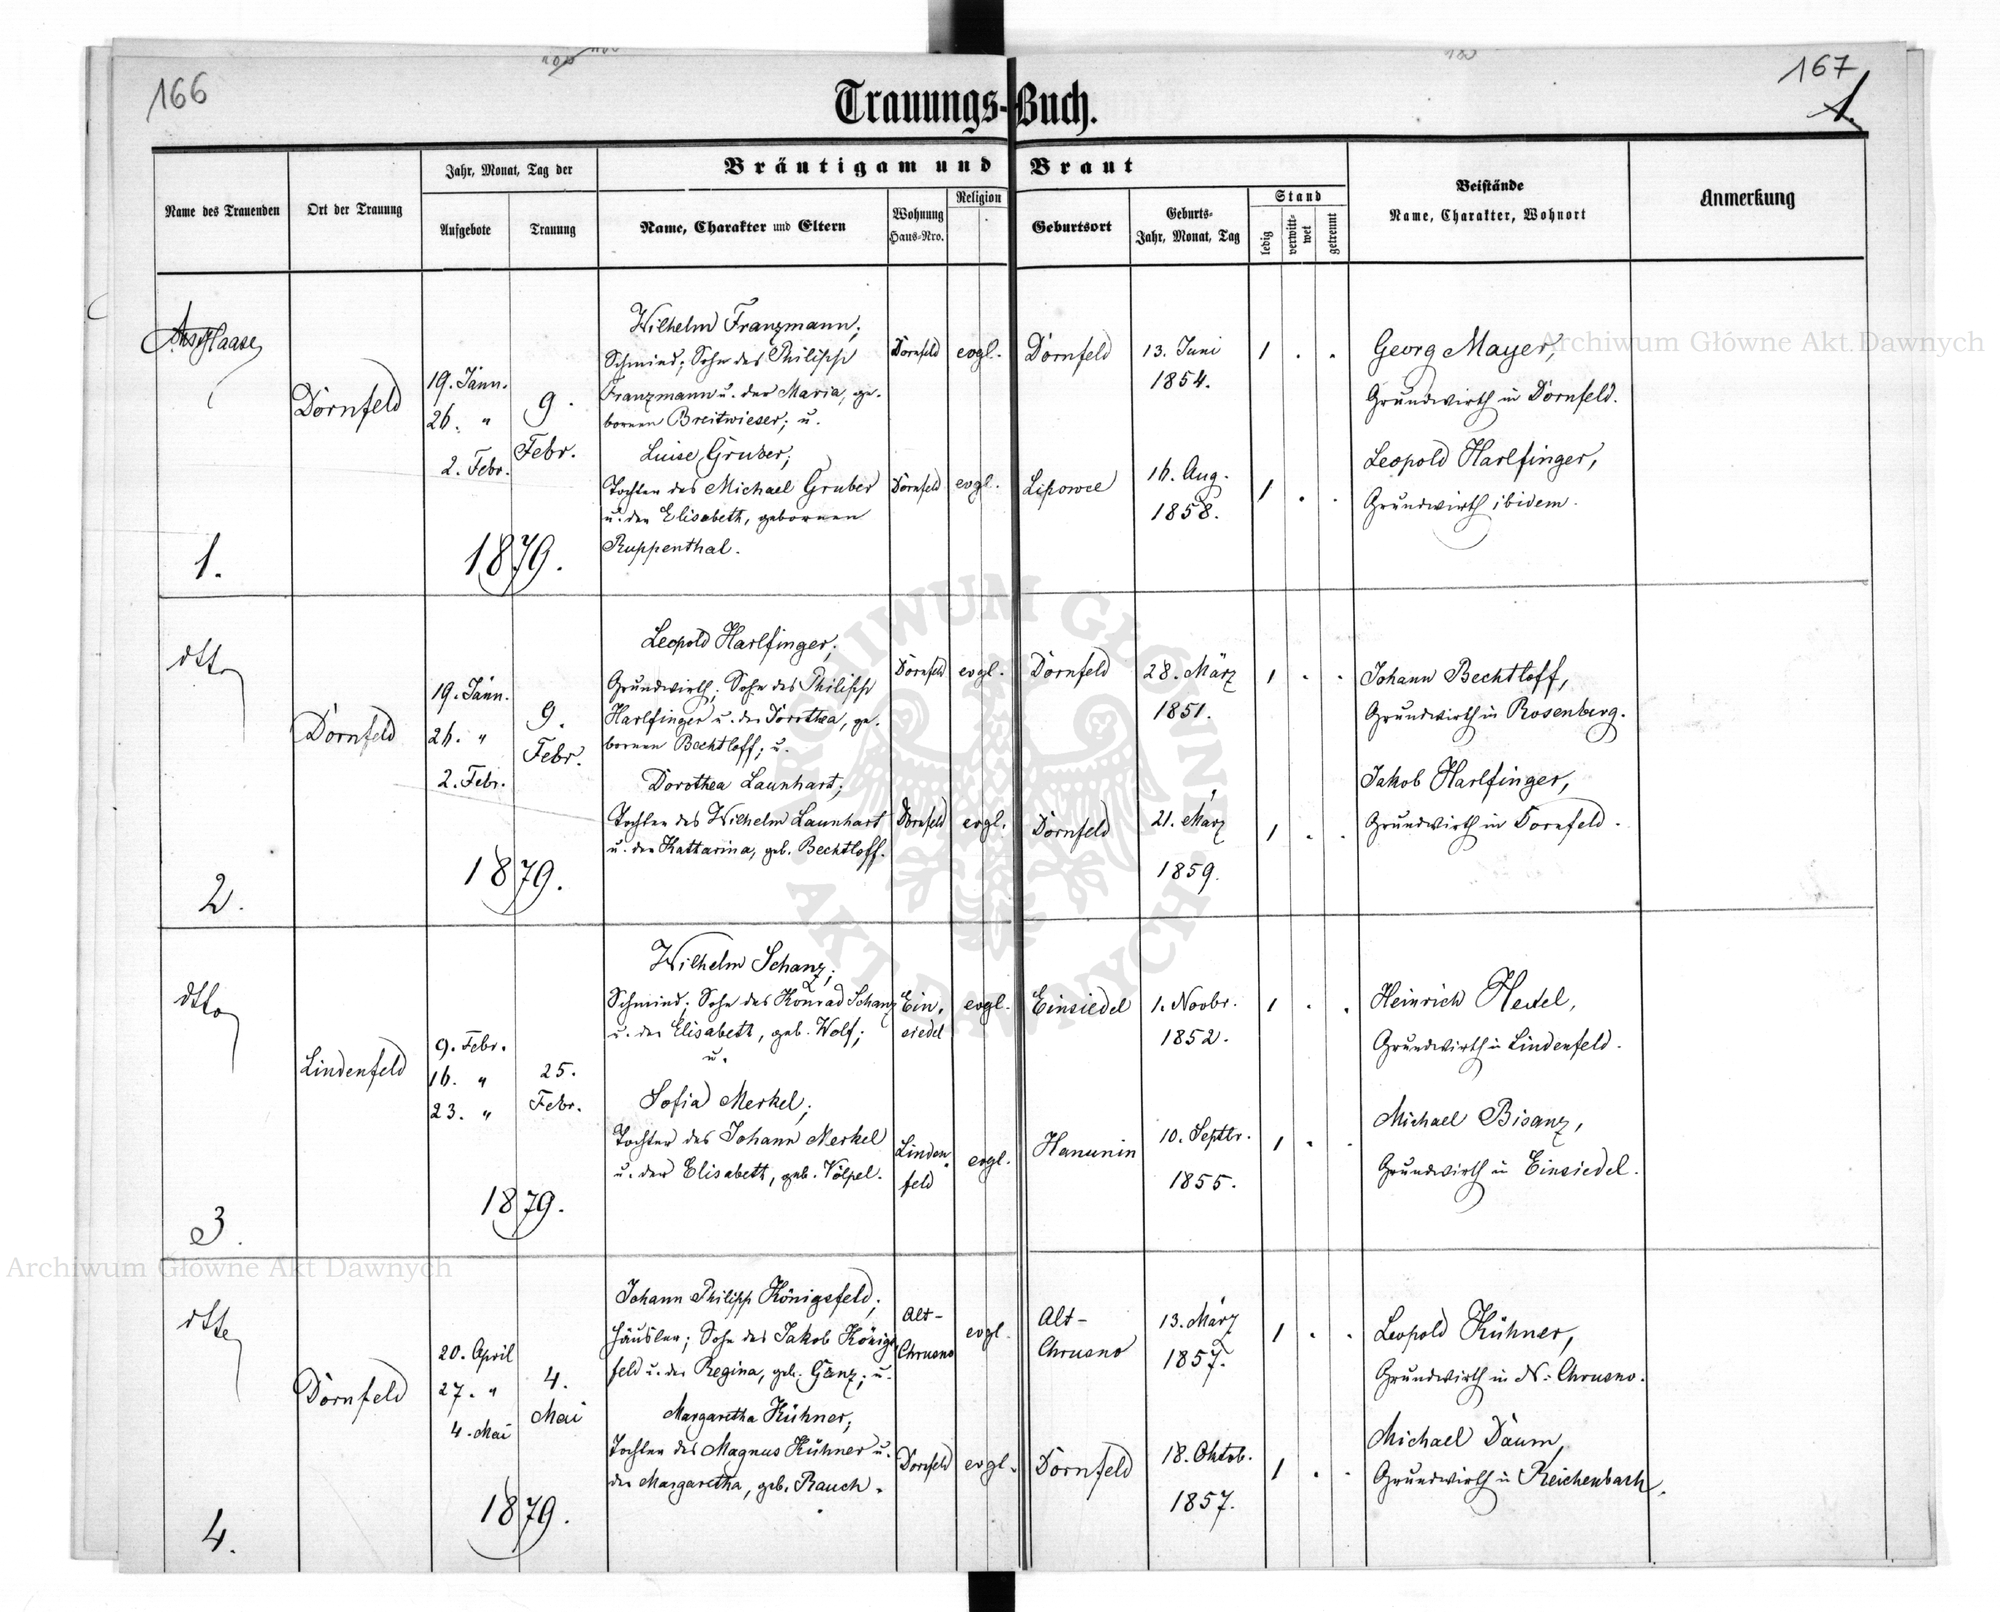 166
167
1.
Trauungs-Buch.
Name des Trauenden
Ort der Trauung
Jahr, Monat, Tag der
Aufgebote
Trauung
Bräutigam und Braut
Name, Charakter und Eltern
Wohnung
Haus-Nro.
Religion
Geburtsort
Geburts-
Jahr, Monat, Tag
Stand
ledig
verwitt-
wet
getrennt
Beistände
Name, Charakter, Wohnort
Anmerkung
Haase
1.
Dornfeld
19. Jänn.
26. "
2. Febr.
9.
Febr.
1879.
Wilhelm Franzmann;
Schmied; Sohn des Philipp
Franzmann u. der Maria, ge-
bornen Breitwieser; u.
Luise Gruber;
Tochter des Michael Gruber
u. der Elisabeth, gebornen
Ruppenthal.
Dornfeld
evgl.
Dornfeld
evgl.
Dornfeld
13. Juni
1854.
1 . .
Lipowce
16. Aug.
1858.
1 . .
Georg Mayer,
Grundwirth in Dornfeld.
Leopold Harlfinger,
Grundwirth ibidem.
dtto
2.
Dornfeld
19. Jänn.
26. "
2. Febr.
9.
Febr.
1879.
Leopold Harlfinger;
Grundwirth; Sohn des Philipp
Harlfinger u. der Dorothea, ge-
bornen Bechtloff; u.
Dorothea Launhart;
Tochter des Wilhelm Launhart
u. der Katharina, geb. Bechtloff.
Dornfeld
evgl.
Dornfeld
evgl.
Dornfeld
28. März
1851.
1 . .
Dornfeld
21. März
1859.
1 . .
Johann Bechtloff,
Grundwirth in Rosenberg.
Jakob Harlfinger,
Grundwirth in Dornfeld.
dtto
3.
Lindenfeld
9. Febr.
16. "
23. "
25.
Febr.
1879.
Wilhelm Schanz;
Schmied; Sohn des Konrad Schanz
u. der Elisabeth, geb. Wolf;
u.
Sofia Merkel;
Tochter des Johann Merkel
u. der Elisabeth, geb. Völpel.
Ein-
siedel
evgl.
Linden-
feld
evgl.
Einsiedel
1. Novbr.
1852.
1 . .
Hanunin
10. Septbr.
1855.
1 . .
Heinrich
Grundwirth in Lindenfeld.
Michael Bisanz,
Grundwirth in Einsiedel.
dtto
4.
Dornfeld
20. April
27. "
4. Mai
4.
Mai
1879.
Johann Philipp Königsfeld;
Häusler; Sohn des Jakob Königs-
feld u. der Regina, geb. Ganz; u.
Margaretha Kühner;
Tochter des Magnus Kühner u.
der Margaretha, geb. Rauch.
Alt-
Chrusno
evgl.
Dornfeld
evgl.
Alt-
Chrusno
13. März
1857.
1 . .
Dornfeld
18. Oktob.
1857.
1 . .
Leopold Kühner,
Grundwirth in N: Chrusno.
Michael Daum,
Grundwirth in Reichenbach.
Archiwum Główne Akt Dawnych
Archiwum Główne Akt Dawnych
ARCHIWUM GŁÓWNE
AKT DAWNYCH